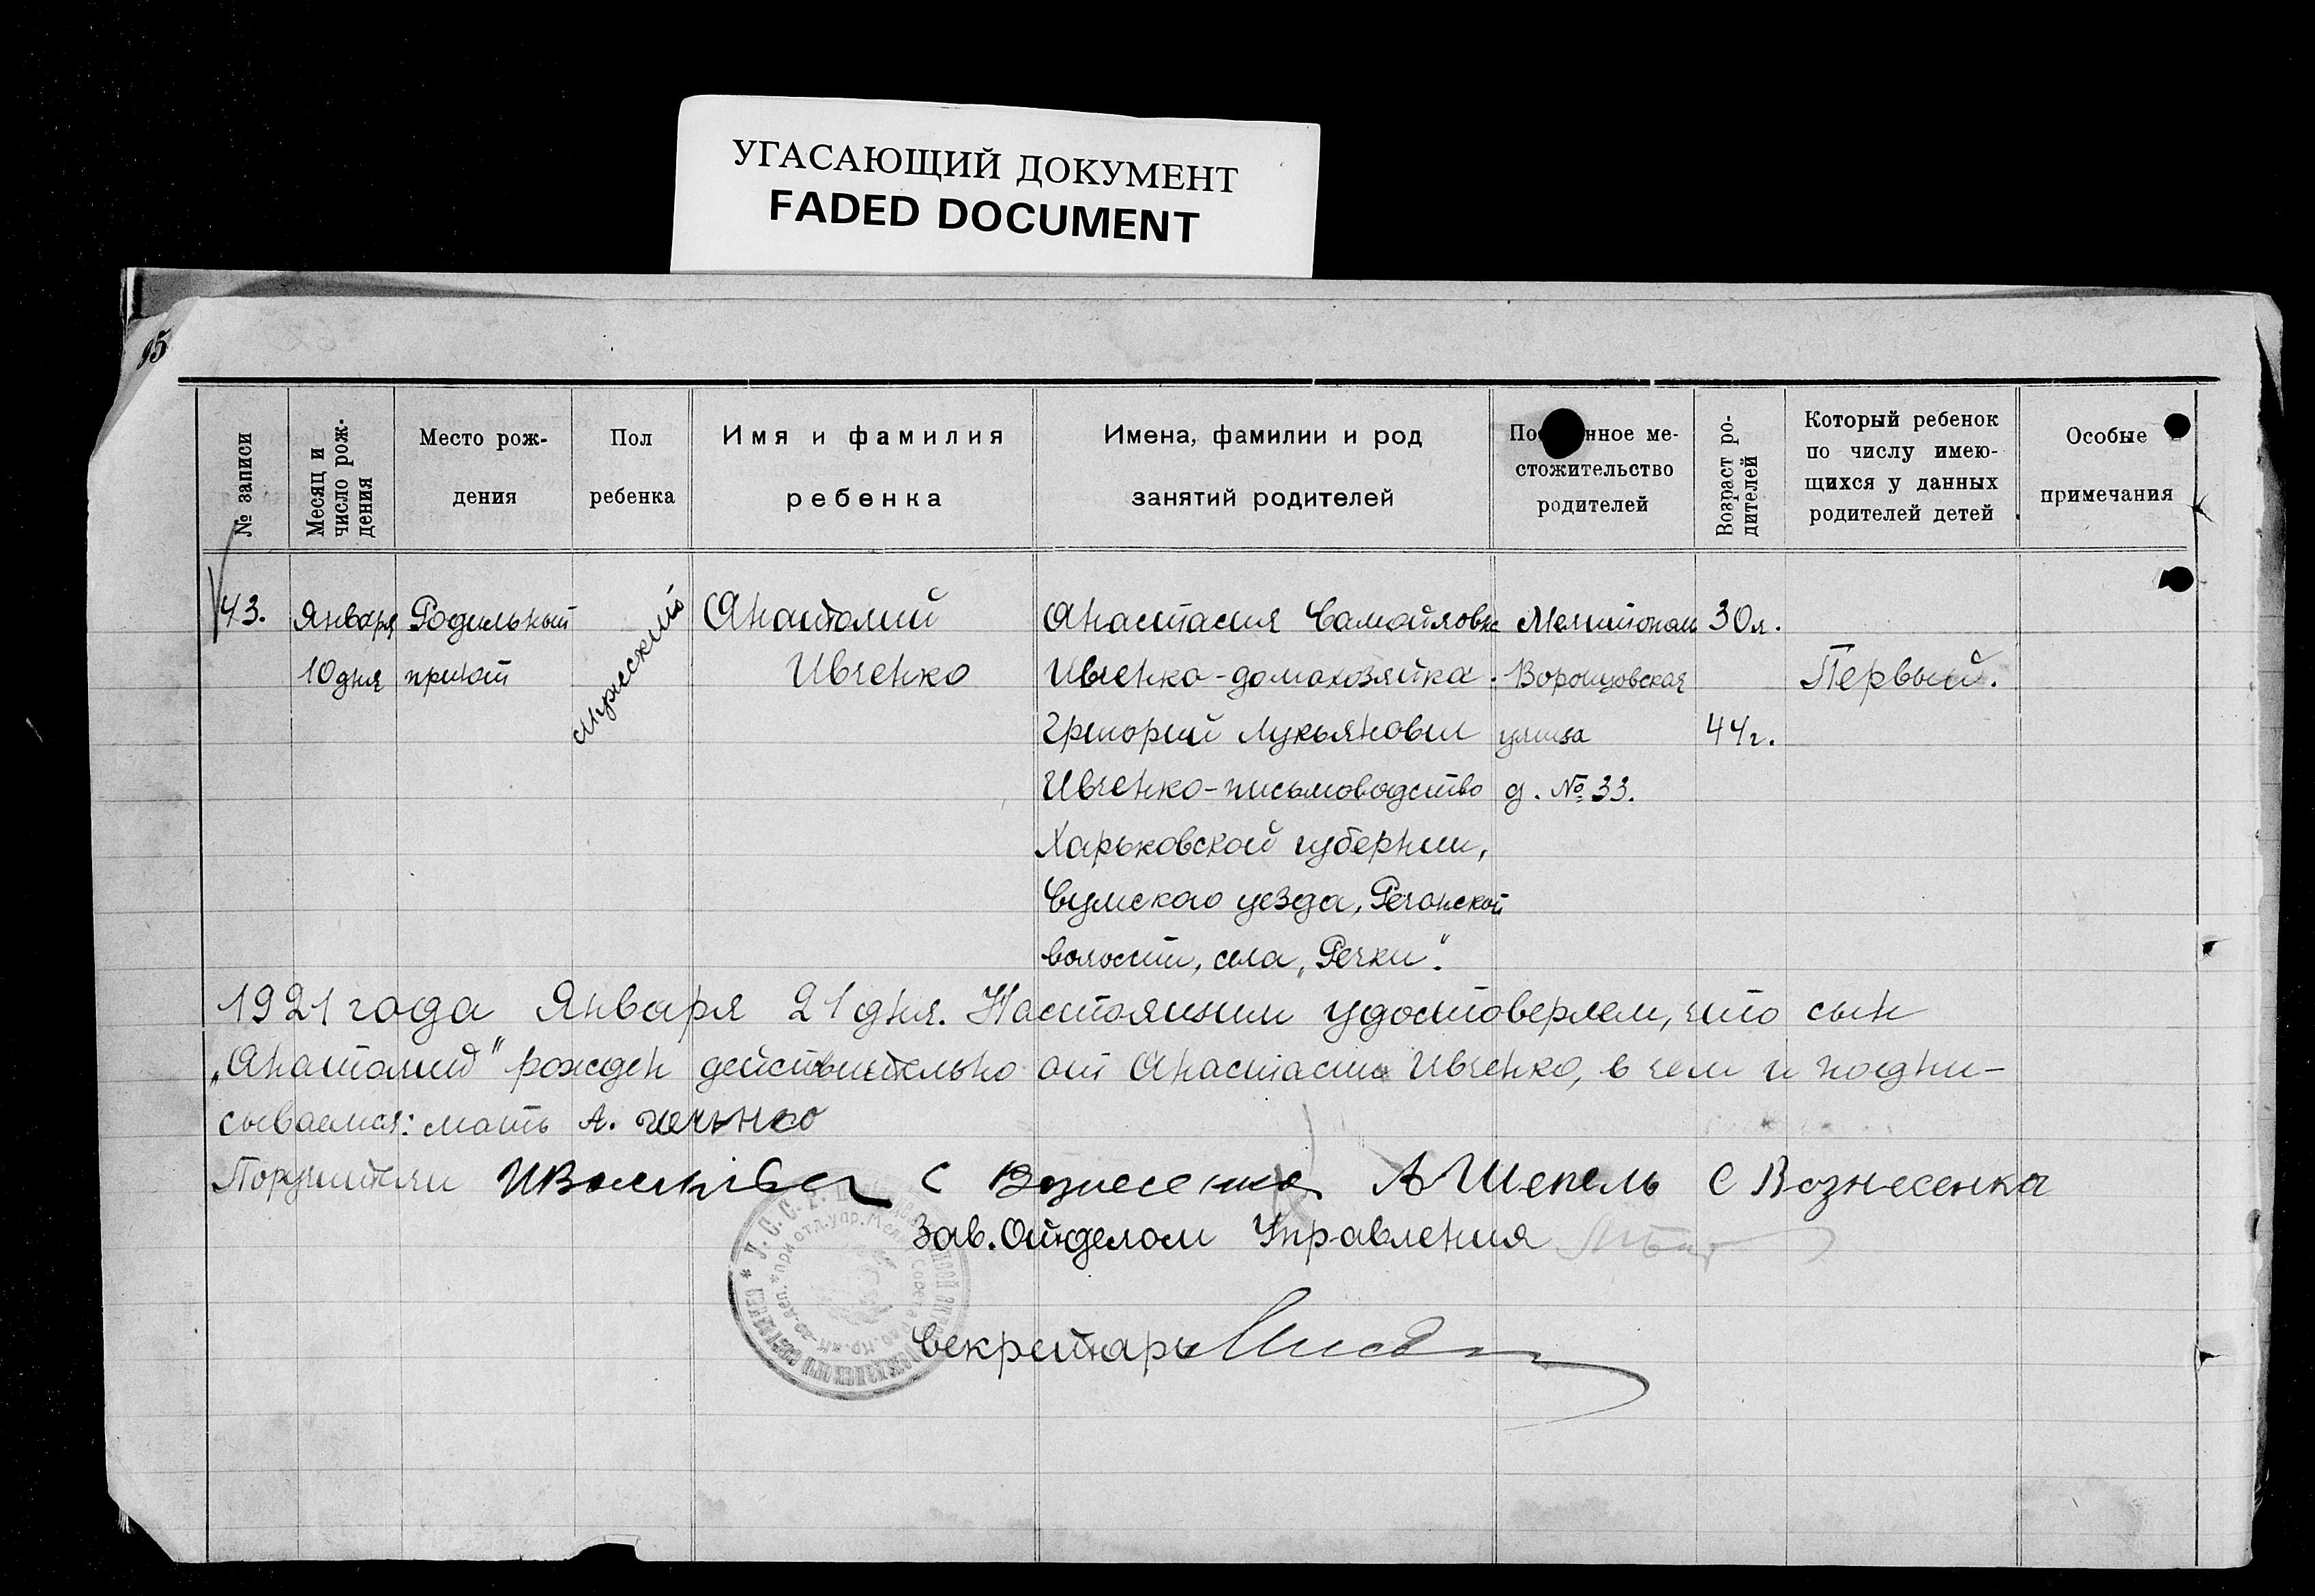 УГАСАЮЩИЙ ДОКУМЕНТ
FADED DOCUMENT
95
№ записи
Месяц и
число рож-
дения
Место рож-
дения
Пол
ребенка
Имя и фамилия
ребенка
Имена, фамилии и род
занятий родителей
По нное ме-
стожительство
родителей
Возраст ро-
дителей
Который ребенок
по числу имею-
щихся у данных
родителей детей
Особые
примечания
43.
Января
10 дня
Родильный
приют
мужеский
Анатолий
Ивченко
Анастасия Самойловна
Ивченко-домохозяйка.
Григорий Лукьянович
Ивченко-письмоводство
Харьковской губернии,
Сумского уезда, Речанской
волости, села „Речки".
Мелитополь
Воронцовская
улица
д. № 33.
30 л.
44 г.
Первый.
1921 года Января 21 дня. Настоящим удостоверяем, что сын
„Анатолий" рожден действительно от Анастасии Ивченко, в чем и подпи-
сываемся: мать А.
Поручители С Вознесенка А Шепель С Вознесенка
Зав. Отделом Управления
Секретарь
У.С.С.Р.
при отд. упр.